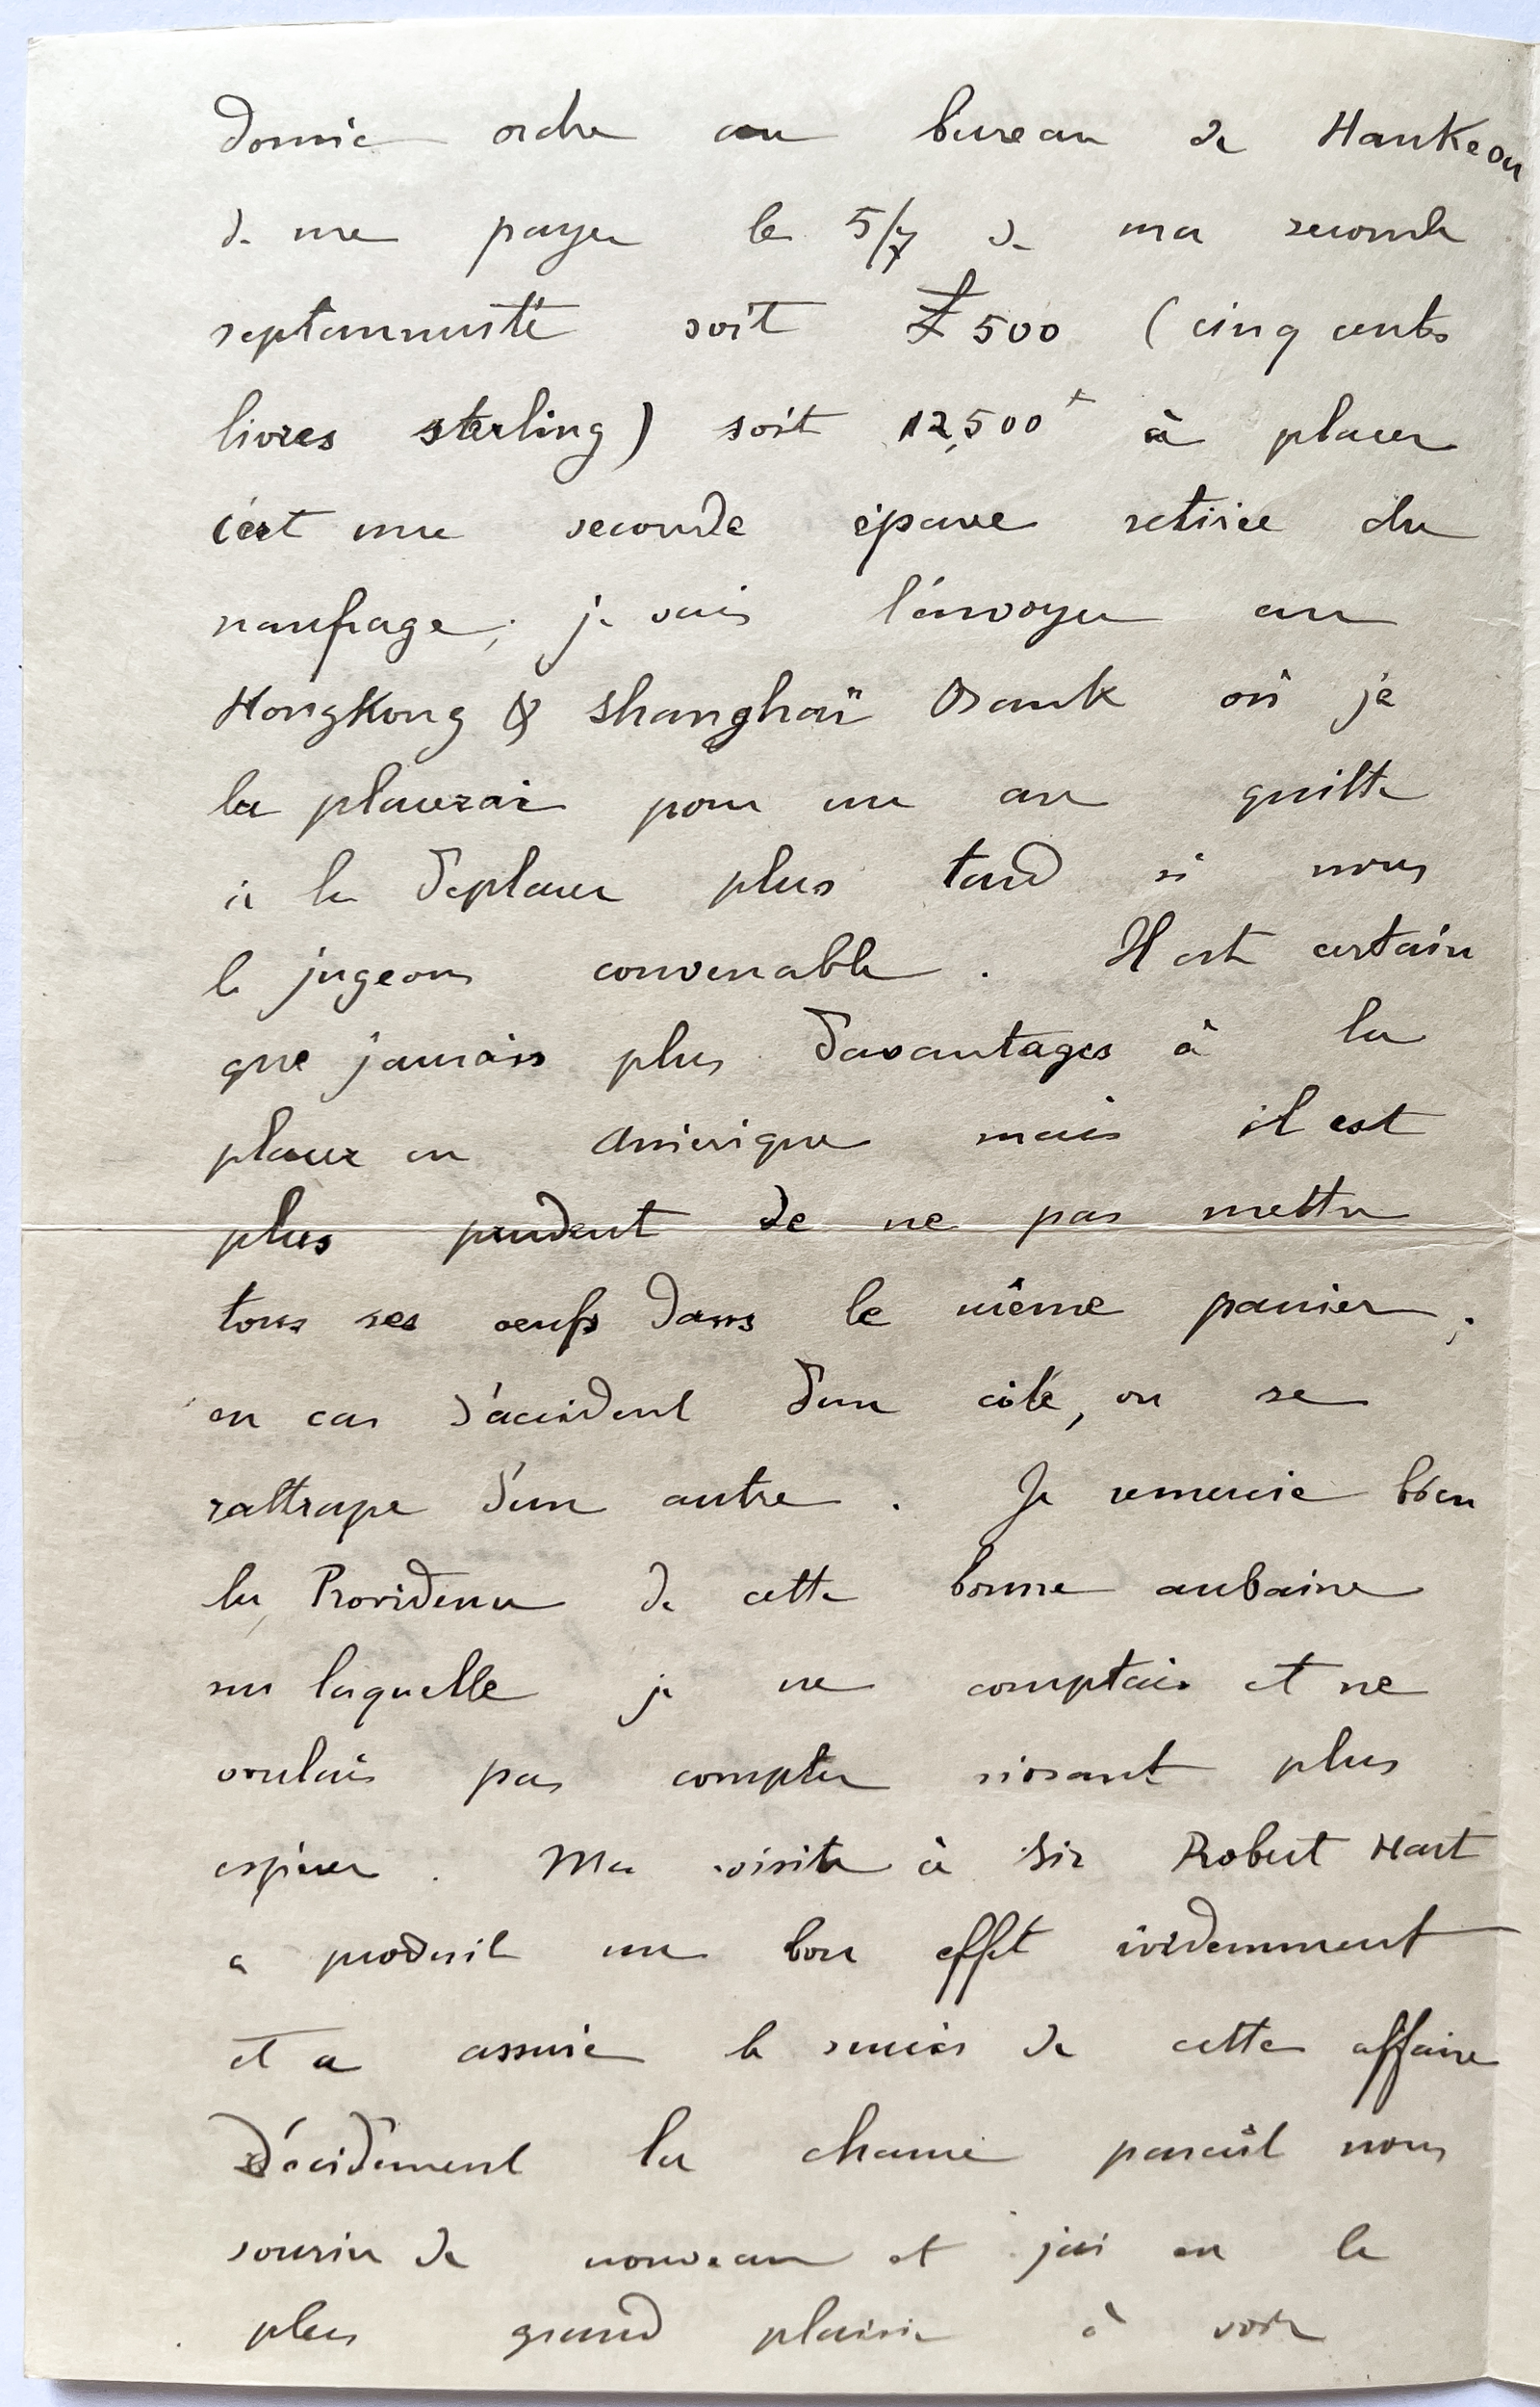 donné ordre au bureau de Hankeou
de me payer les 5/7 de ma seconde
septannuité soit £ 500 (cinq cents
livres sterling) soit 12,500f à placer
c'est une seconde épave retirée du
naufrage; je vais l'envoyer au
HongKong & Shanghaï Bank où je
la placerai pour un an quitte
à la déplacer plus tard si nous
le jugeons convenable. Il est certain
que j'aurais plus d'avantages à la
placer en Amérique mais il est
plus prudent de ne pas mettre
tous ses oeufs dans le même panier;
en cas d'accident d'un côté, on se
rattrape d'un autre. Je remercie bien
la Providence de cette bonne aubaine
sur laquelle je ne comptais et ne
voulais pas compter n'osant plus
espérer. Ma visite à Sir Robert Hart
a produit un bon effet évidemment
et a assuré le succès de cette affaire
Décidément la chance paraît nous
sourire de nouveau et j'ai eu le
plus grand plaisir à voir